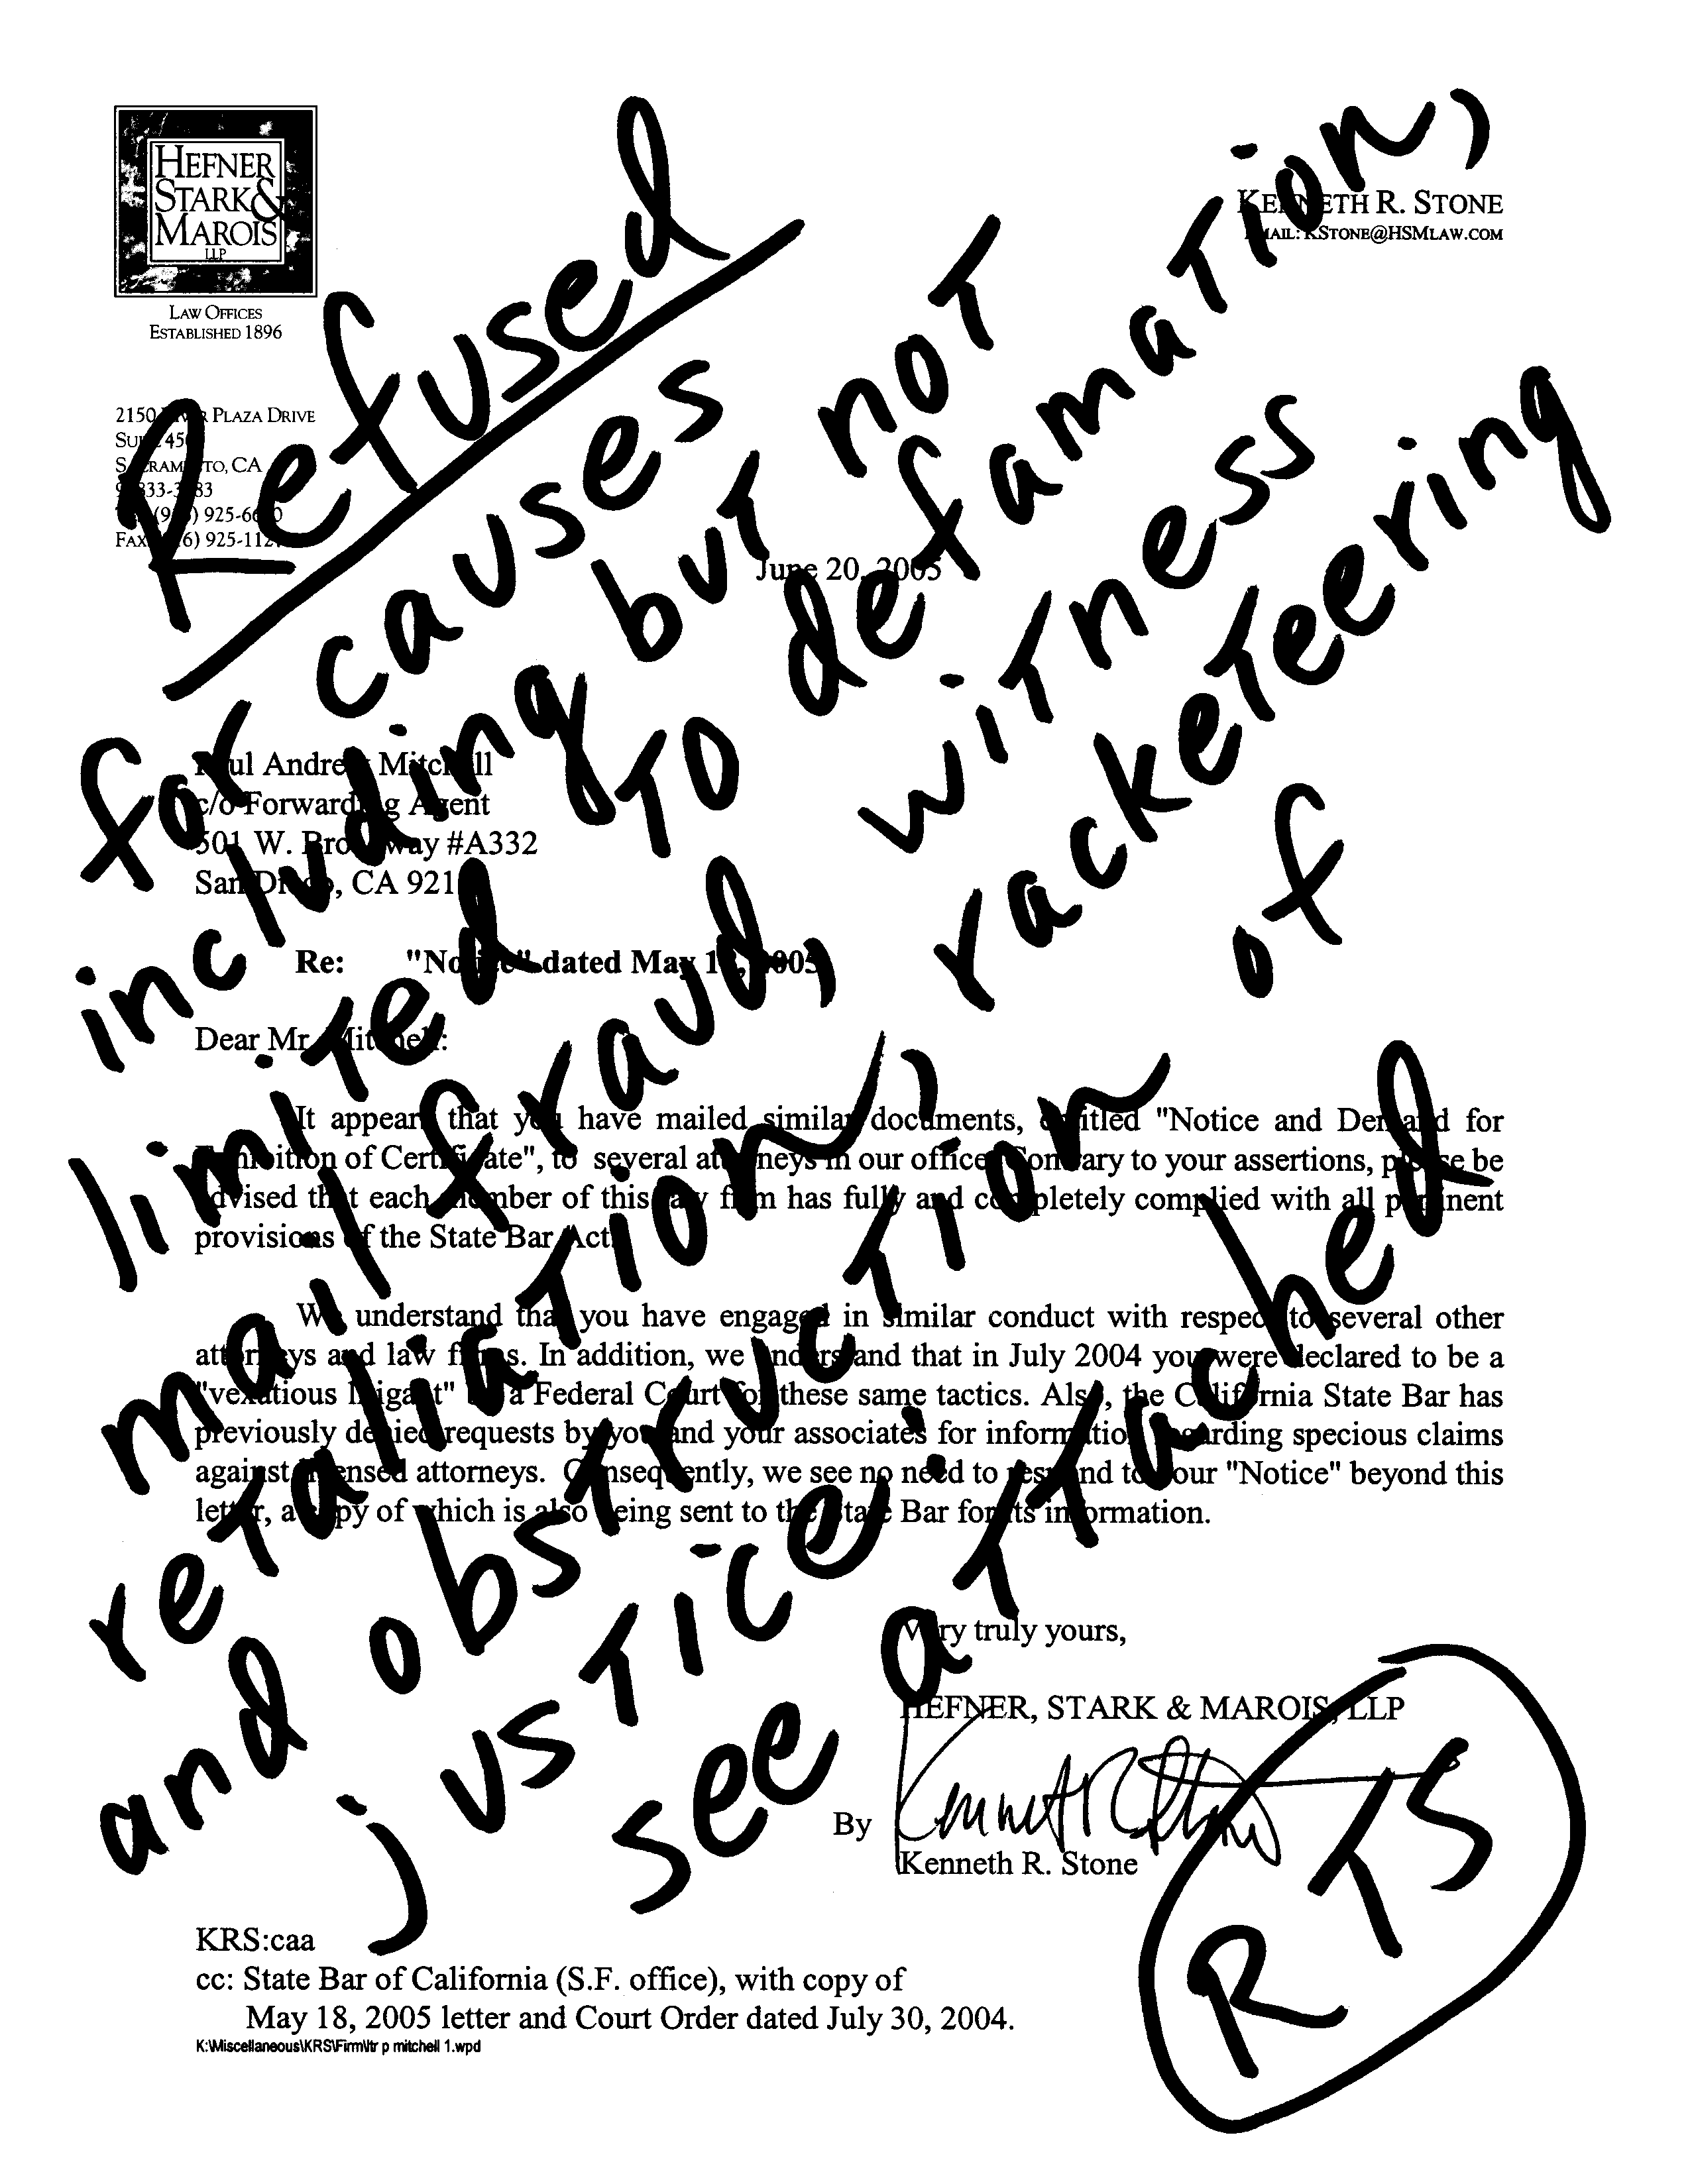 HEFNER
STARK &
MAROIS
LLP
LAW OFFICES
ESTABLISHED 1896
KENNETH R. STONE
EMAIL: KSTONE@HSMLAW.COM
2150 RIVER PLAZA DRIVE
SUITE 450
SACRAMENTO, CA
FAX (916) 925-112
June 20, 2005
Paul Andrew Mitchell
c/o Forwarding Agent
501 W. Broadway #A332
San Diego, CA 921
Re: "Notice" dated May 18, 2005
Dear Mr. Mitchell:
It appears that you have mailed similar documents, entitled "Notice and Demand for
Exhibition of Certificate", to several attorneys in our office. Contrary to your assertions, please be
advised that each member of this law firm has fully and completely complied with all pertinent
provisions of the State Bar Act.
We understand that you have engaged in similar conduct with respect to several other
attorneys and law firms. In addition, we understand that in July 2004 you were declared to be a
"vexatious litigant" by a Federal Court for these same tactics. Also, the California State Bar has
previously denied requests by you and your associates for information regarding specious claims
against licensed attorneys. Consequently, we see no need to respond to your "Notice" beyond this
letter, a copy of which is also being sent to the State Bar for its information.
Very truly yours,
HEFNER, STARK & MAROIS, LLP
By
Kenneth R. Stone
KRS:caa
cc: State Bar of California (S.F. office), with copy of
May 18, 2005 letter and Court Order dated July 30, 2004.
K:\Miscellaneous\KRS\Firm\ltr p mitchell 1.wpd
Refused
for causes
including but not
limited to defamation,
mail fraud, witness
retaliation, racketeering
and obstruction of
justice: 
see attached
RTS